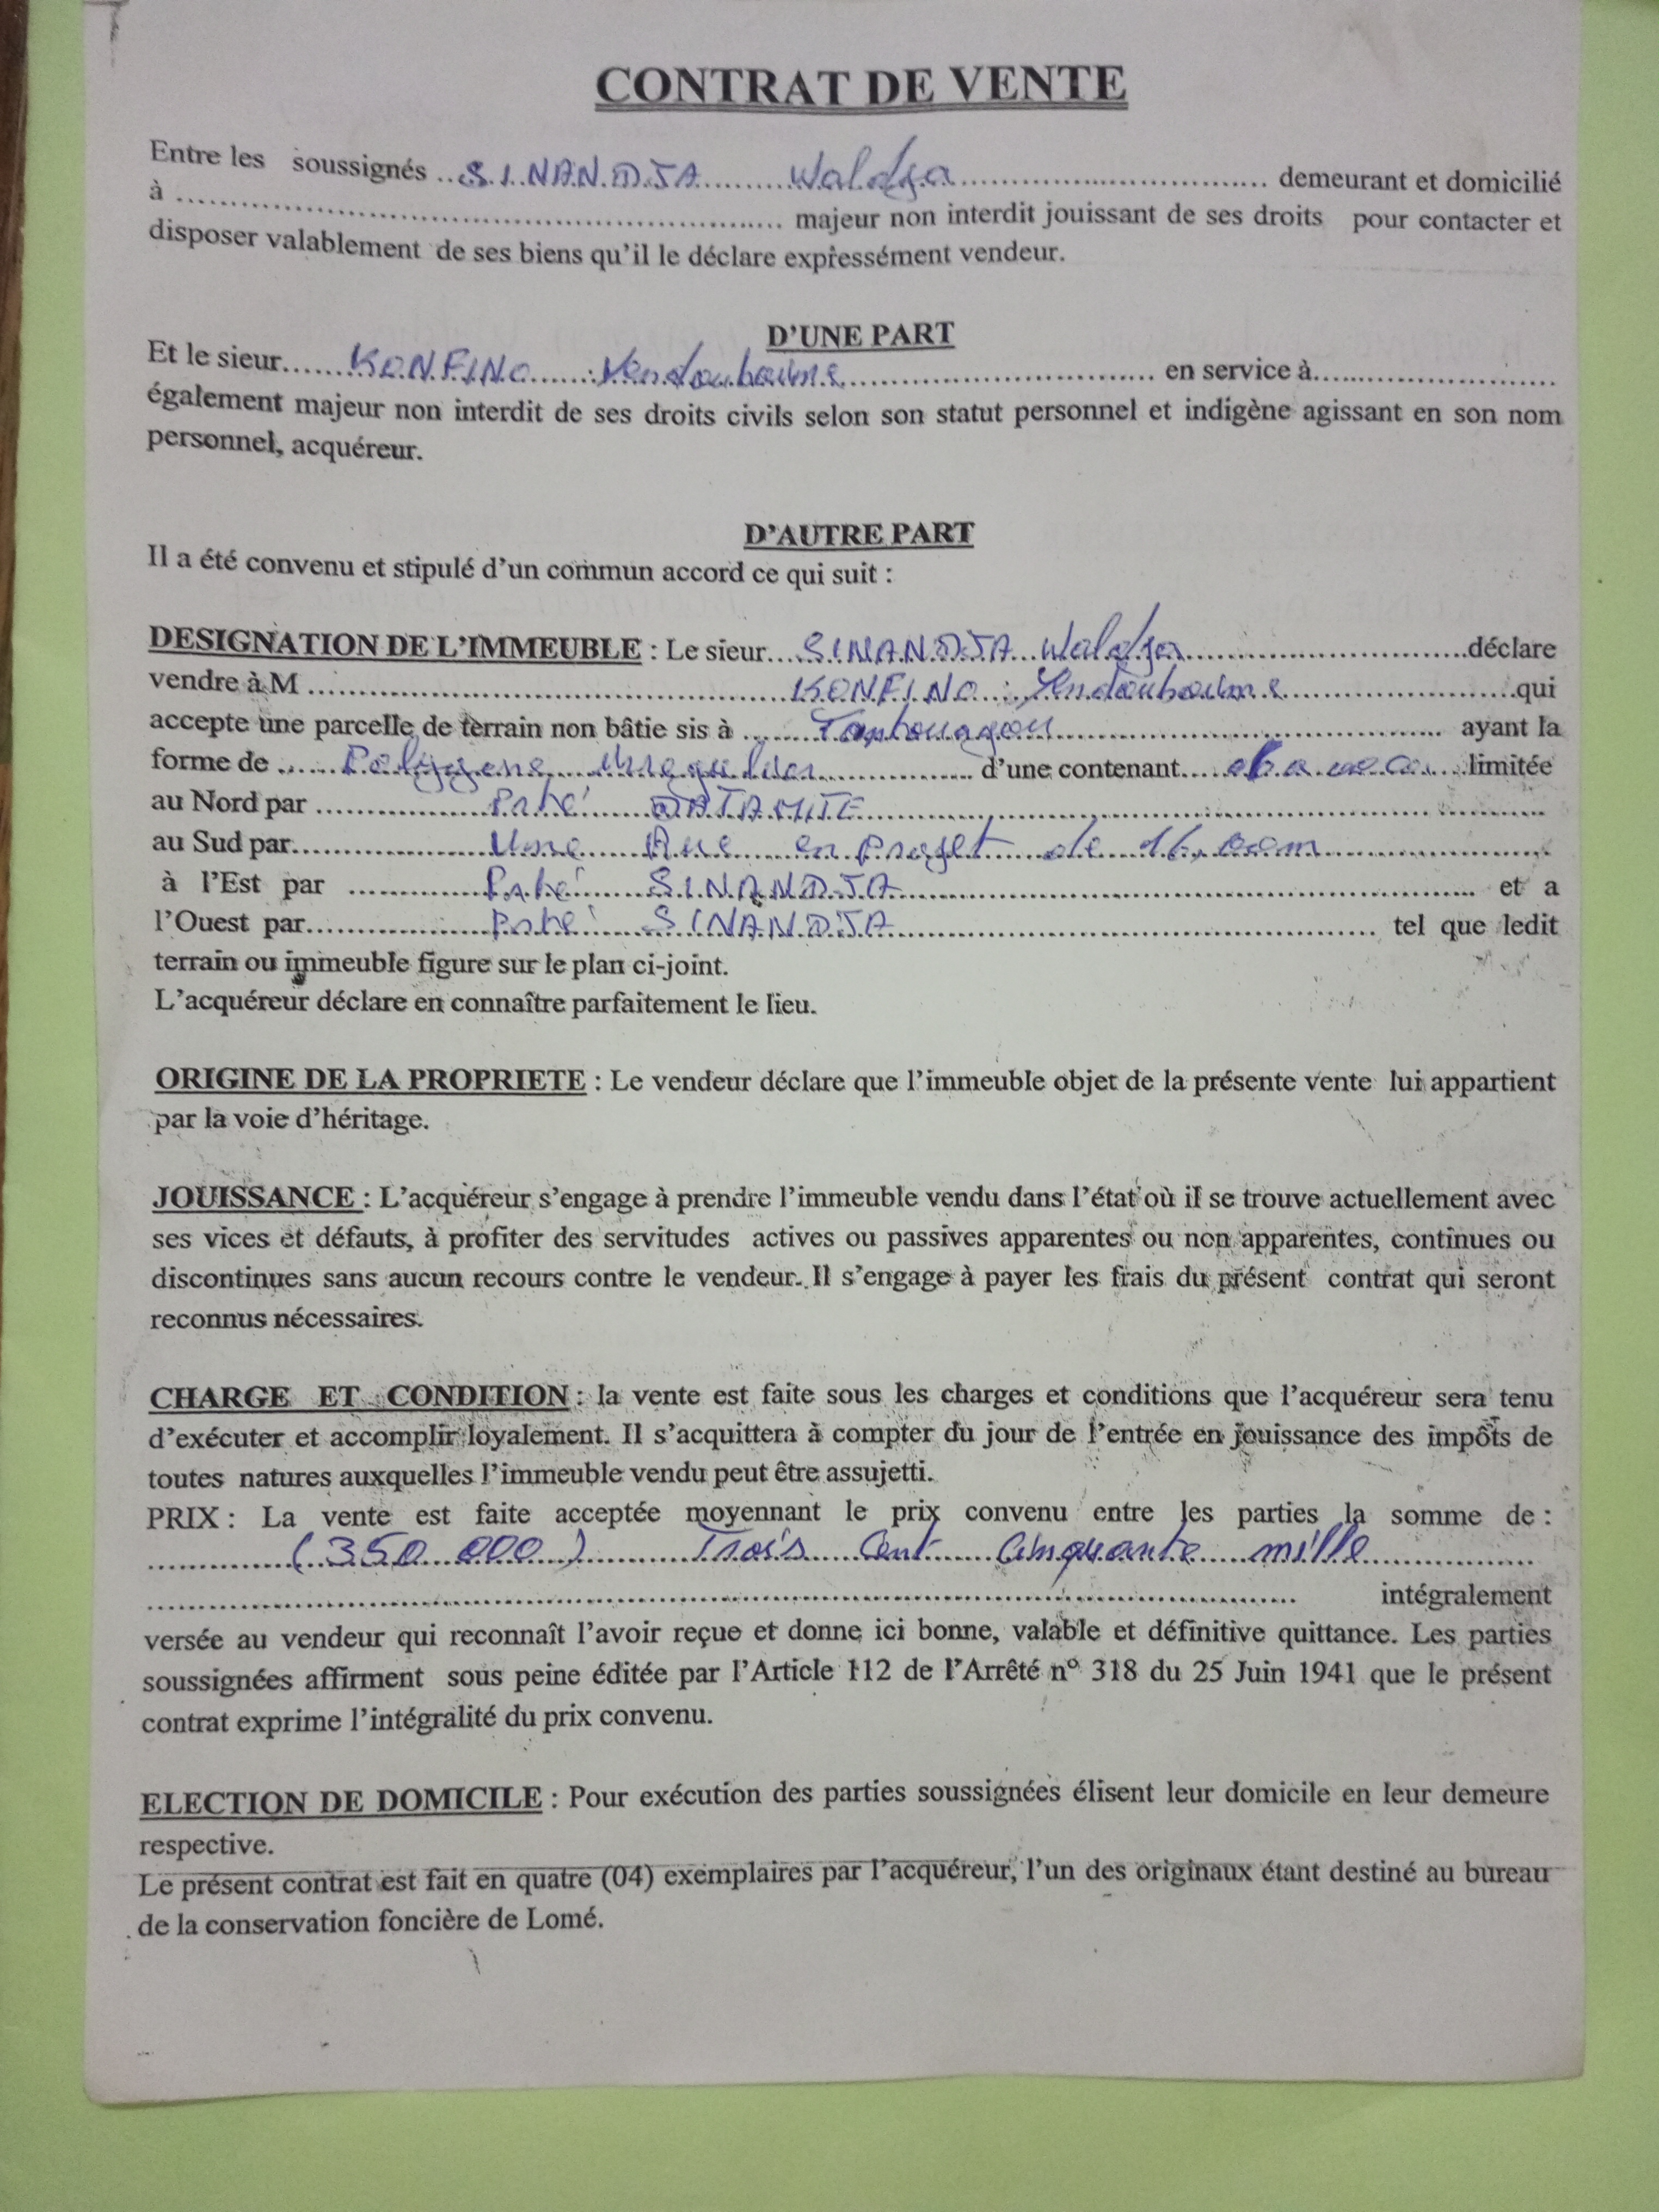 CONTRAT DE VENTE
Entre les soussignés ..SINANDJA Waldja.......... demeurant et domicilié
à .......... majeur non interdit jouissant de ses droits pour contacter et
disposer valablement de ses biens qu'il le déclare expressément vendeur.
D'UNE PART
Et le sieur......KONFINO.......... en service à..........
également majeur non interdit de ses droits civils selon son statut personnel et indigène agissant en son nom
personnel, acquéreur.
D'AUTRE PART
Il a été convenu et stipulé d'un commun accord ce qui suit :
DESIGNATION DE L'IMMEUBLE : Le sieur...SINANDJA Waldja..........déclare
vendre à M ..........KONFINO..........qui
accepte une parcelle de terrain non bâtie sis à .......... ayant la
forme de ......Polygone irregulier.......... d'une contenant..........limitée
au Nord par ..........DATAMITE..........
au Sud par..........Une Rue en projet de 16,00m..........
à l'Est par ..........SINANDJA.......... et a
l'Ouest par..........SINANDJA.......... tel que ledit
terrain ou immeuble figure sur le plan ci-joint.
L'acquéreur déclare en connaître parfaitement le lieu.
ORIGINE DE LA PROPRIETE : Le vendeur déclare que l'immeuble objet de la présente vente lui appartient
par la voie d'héritage.
JOUISSANCE : L'acquéreur s'engage à prendre l'immeuble vendu dans l'état où il se trouve actuellement avec
ses vices et défauts, à profiter des servitudes actives ou passives apparentes ou non apparentes, continues ou
discontinues sans aucun recours contre le vendeur. Il s'engage à payer les frais du présent contrat qui seront
reconnus nécessaires.
CHARGE ET CONDITION : la vente est faite sous les charges et conditions que l'acquéreur sera tenu
d'exécuter et accomplir loyalement. Il s'acquittera à compter du jour de l'entrée en jouissance des impôts de
toutes natures auxquelles l'immeuble vendu peut être assujetti.
PRIX : La vente est faite acceptée moyennant le prix convenu entre les parties la somme de :
..........(350 000) Trois Cent Cinquante mille..........
.......... intégralement
versée au vendeur qui reconnaît l'avoir reçue et donne ici bonne, valable et définitive quittance. Les parties
soussignées affirment sous peine éditée par l'Article 112 de l'Arrêté n° 318 du 25 Juin 1941 que le présent
contrat exprime l'intégralité du prix convenu.
ELECTION DE DOMICILE : Pour exécution des parties soussignées élisent leur domicile en leur demeure
respective.
Le présent contrat est fait en quatre (04) exemplaires par l'acquéreur, l'un des originaux étant destiné au bureau
de la conservation foncière de Lomé.